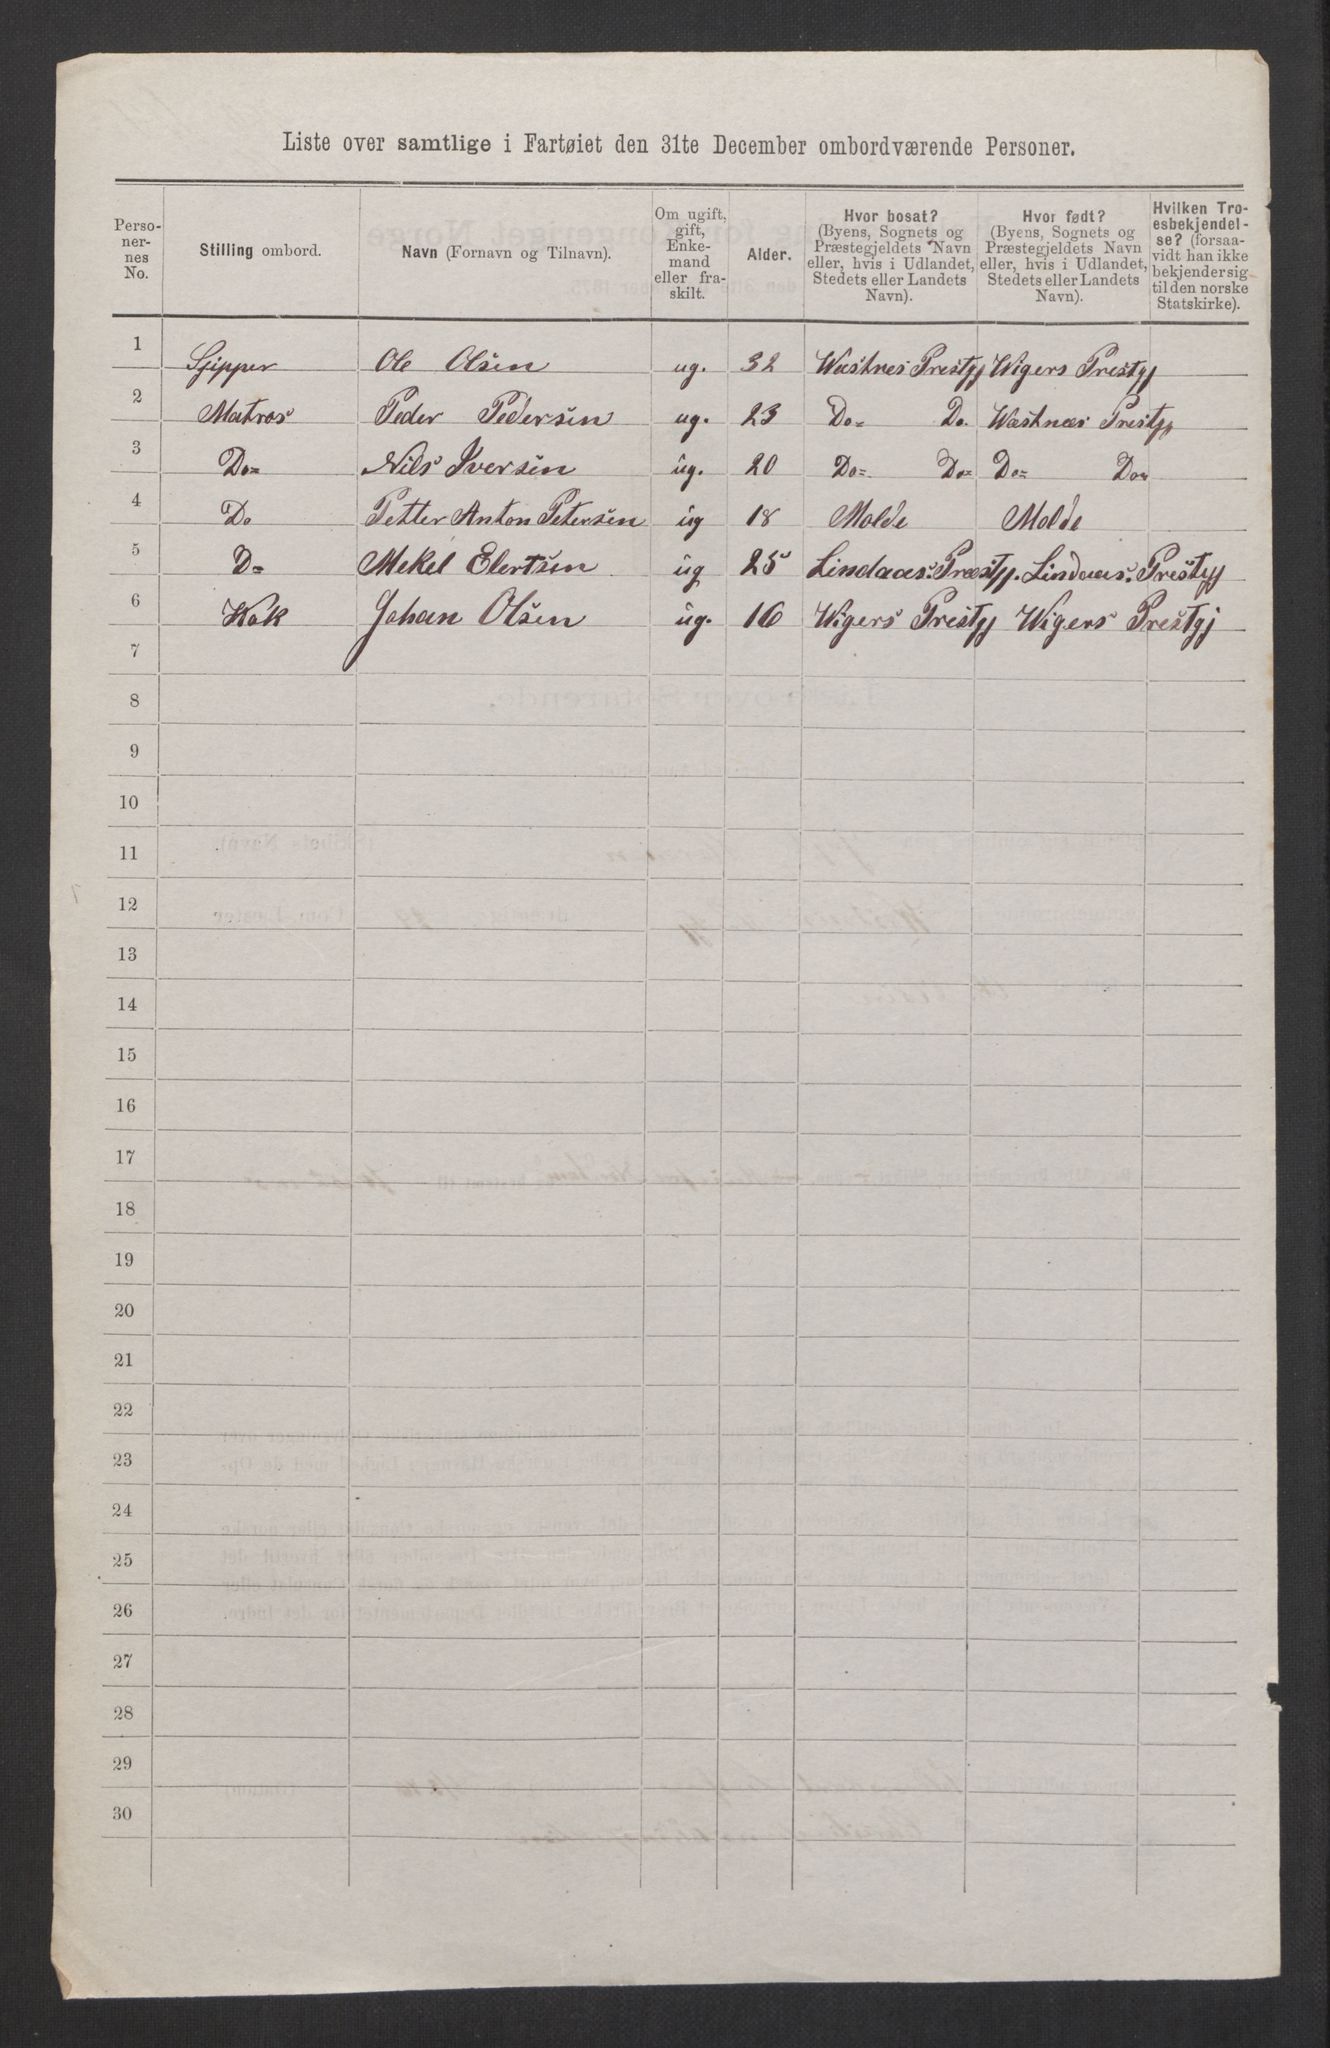 Liste over samtlige i Fartøiet den 31te December ombordværende Personer.
Perso-
ner-
nes
No.
Stilling ombord.
Navn (Fornavn og Tilnavn).
Om ugift,
gift,
Enke-
mand
eller fra-
skilt.
Alder.
Hvor bosat?
(Byens, Sognets og
Præstegjeldets Navn
eller, hvis i Udlandet,
Stedets eller Landets
Navn).
Hvor født?
(Byens, Sognets og
Præstegjeldets Navn
eller, hvis i Udlandet,
Stedets eller Landets
Navn).
Hvilken Tro-
esbekjendel-
se? (forsaa-
vidt han ikke
bekjender sig
til den norske
Statskirke).
1 Sjipper Ole Olsen ug. 32 Wæstnes Prestgj Wigers Prestgj
2 Matros Peder Pedersen ug. 23 Do= Do. Wæstnæs Prestgj
3 Do= Nils Iversen ug. 20 Do= Do= Do= Do=
4 Do Petter Anton Petersen ug 18 Molde Molde
5 D= Mekel Elertsen ug 25 Lindaas. Præstgj. Lindaas. Prestgj
6 Kok Johan Olsen ug. 16 Wigers Prestgj Wigers Prestgj
7
8
9
10
11
12
13
14
15
16
17
18
19
20
21
22
23
24
25
26
27
28
29
30